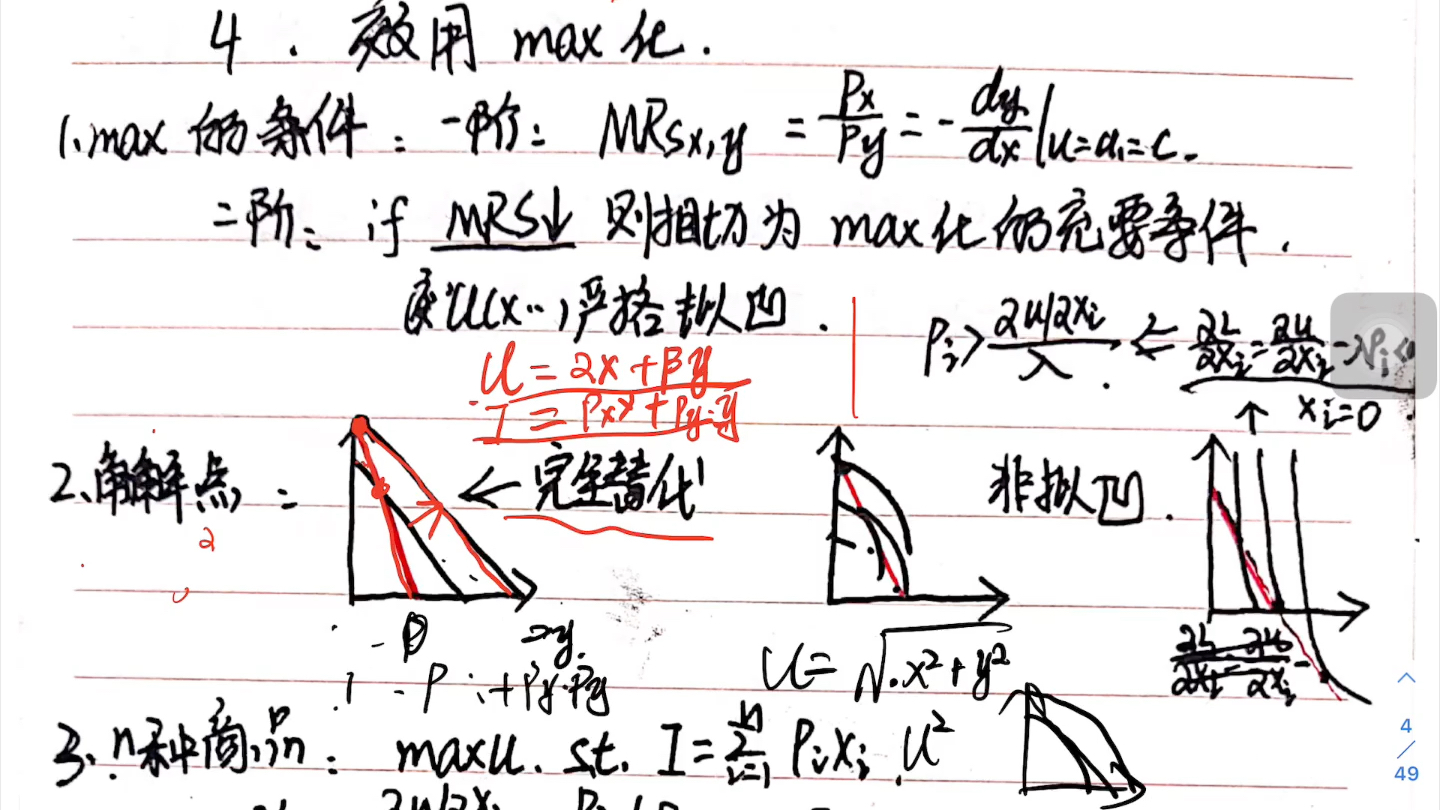 4 . 效用 max 化.
1. max 的条件: 一阶: MRSx,y = Px/Py = -dy/dx|u=u₁=c.
二阶: if MRS↓ 则相切为 max化的充要条件.
或 U(x…)严格拟凹.
Pi > (∂u/∂xi)/λ ⇐ ∂L/∂xi = ∂u/∂xi - λPi <0
xi=0
U = αx + βy
I = Pxx + Py·y
2. 角解点:
← 完全替代
非拟凹.
U = √x²+y²
∂L/∂xi = ∂u/∂xi -
3. n种商品: max u. s.t. I = Σⁿi=1 Pixi U²
4
/
49